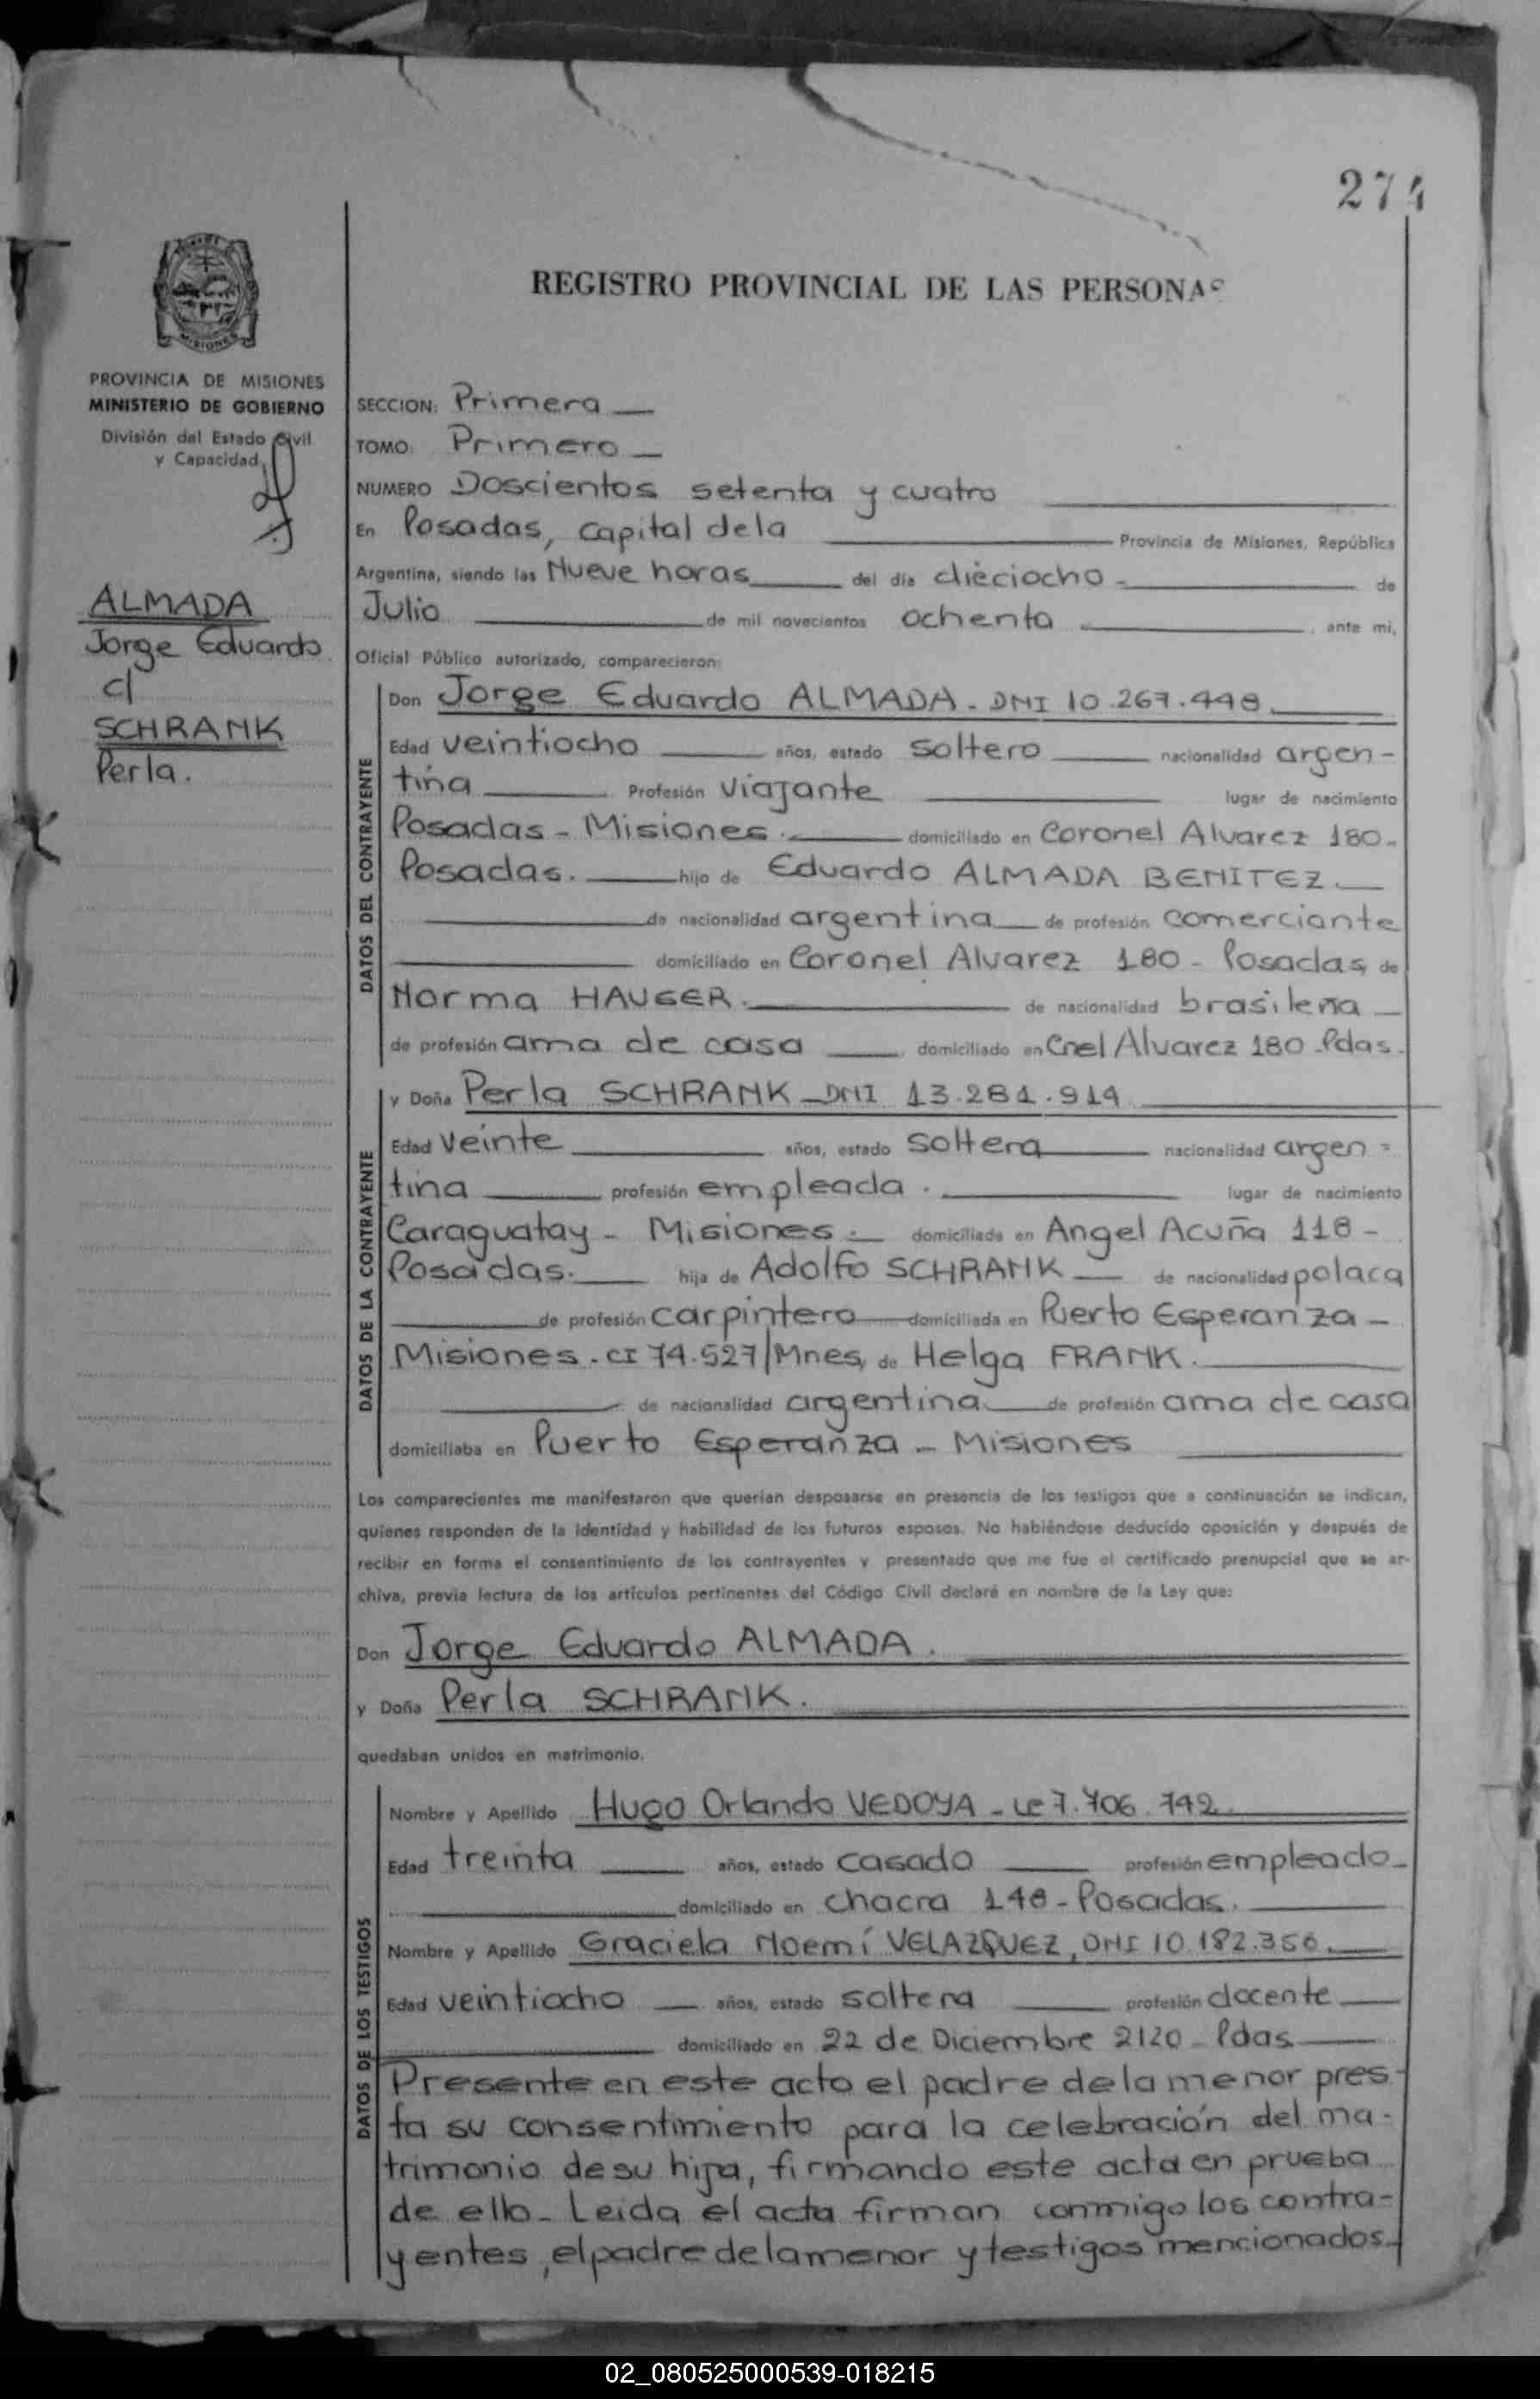 274
REGISTRO PROVINCIAL DE LAS PERSONAS
MISIONES
PROVINCIA DE MISIONES
MINISTERIO DE GOBIERNO
División del Estado Civil
y Capacidad
ALMADA
Jorge Eduardo
c/
SCHRANK
Perla.
SECCION: Primera
TOMO: Primero
NUMERO Doscientos setenta y cuatro
En Posadas, capital de la Provincia de Misiones, República
Argentina, siendo las Nueve horas del día dieciocho de
Julio de mil novecientos ochenta, ante mi,
Oficial Público autorizado, comparecieron:
DATOS DEL CONTRAYENTE
Don Jorge Eduardo ALMADA - DNI 10.267.448
Edad veintiocho años, estado soltero nacionalidad argen-
tina Profesión viajante lugar de nacimiento
Posadas - Misiones. domiciliado en Coronel Alvarez 180 -
Posadas. hijo de Eduardo ALMADA BENITEZ.
de nacionalidad argentina de profesión comerciante
domiciliado en Coronel Alvarez 180 - Posadas, de
Norma HAUSER. de nacionalidad brasileña
de profesión ama de casa domiciliado en Cnel Alvarez 180 - Pdas.
DATOS DE LA CONTRAYENTE
y Doña Perla SCHRANK - DNI 13.281.919
Edad veinte años, estado soltera nacionalidad argen =
tina profesión empleada. lugar de nacimiento
Caraguatay - Misiones. domiciliada en Angel Acuña 118 -
Posadas. hija de Adolfo SCHRANK de nacionalidad polaca
de profesión carpintero domiciliada en Puerto Esperanza -
Misiones. CI 74.527/Mnes, de Helga FRANK.
de nacionalidad argentina de profesión ama de casa
domiciliaba en Puerto Esperanza - Misiones
Los comparecientes me manifestaron que querían desposarse en presencia de los testigos que a continuación se indican,
quienes responden de la identidad y habilidad de los futuros esposos. No habiéndose deducido oposición y después de
recibir en forma el consentimiento de los contrayentes y presentado que me fue el certificado prenupcial que se ar-
chiva, previa lectura de los artículos pertinentes del Código Civil declaré en nombre de la Ley que:
Don Jorge Eduardo ALMADA.
y Doña Perla SCHRANK.
quedaban unidos en matrimonio.
DATOS DE LOS TESTIGOS
Nombre y Apellido Hugo Orlando VEDOYA - LE 7.706.742
Edad treinta años, estado casado profesión empleado -
domiciliado en chacra 148 - Posadas.
Nombre y Apellido Graciela Noemí VELAZQUEZ, DNI 10.182.356.
Edad veintiocho años, estado soltera profesión docente
domiciliado en 22 de Diciembre 2120 - Pdas
Presente en este acto el padre de la menor pres-
ta su consentimiento para la celebración del ma-
trimonio de su hija, firmando este acta en prueba
de ello - Leída el acta firman conmigo los contra-
yentes, el padre de la menor y testigos mencionados.
02_080525000539-018215